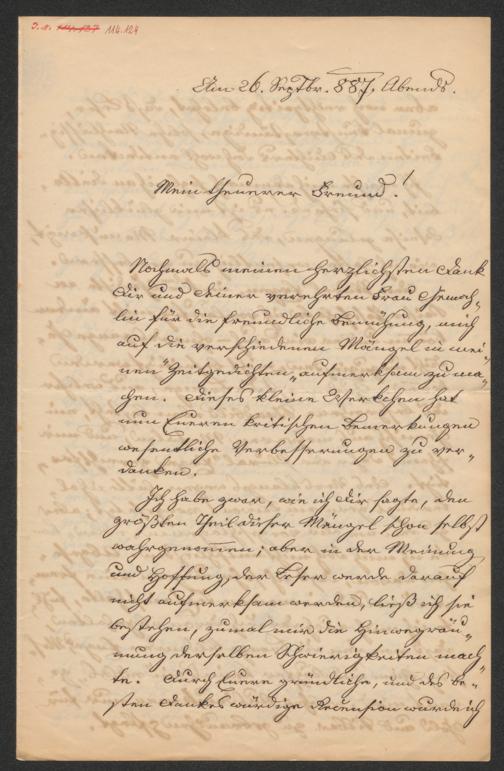 J. N. 114.124
Am 26. Septbr. 887. Abends.
Mein theuerer Freund!
Nochmals meinen herzlichsten Dank
Dir und Deiner verehrten Frau Gemah-
lin für die freundliche Bemühung, mich
auf die verschiedenen Mängel in mei-
nen "Zeitgedichten" aufmerksam zu ma-
chen. Dieses kleine Werkchen hat
nun Eueren kritischen Bemerkungen
wesentliche Verbesserungen zu ver-
danken.
Ich habe zwar, wie ich Dir sagte, den
größten Theil dieser Mängel schon selbst
wahrgenommen; aber in der Meinung
und Hoffnung, der Leser werde darauf
nicht aufmerksam werden, ließ ich sie
bestehen, zumal mir die Hinwegräu-
mung derselben Schwierigkeiten mach-
te. Durch Euere gründliche, und des be-
sten Dankes würdige Recension wurde ich